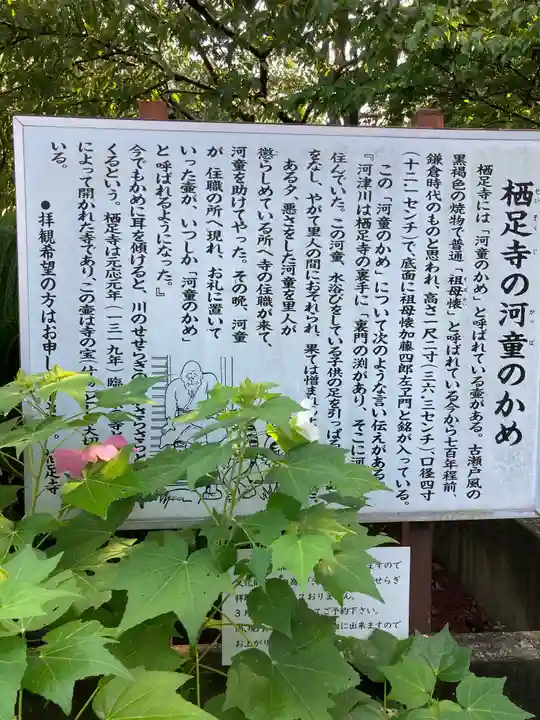 栖足寺の河童のかめ
せいそくじ
かっぱ
栖足寺には「河童のかめ」と呼ばれている壺がある。古瀬戸風の
黒褐色の焼物で普通「祖母懐」と呼ばれている今から七百年程前、
そぼかい
鎌倉時代のものと思われ、高さ一尺二寸(三六・三センチ)、口径四寸
(十二・一センチ)で、底面に祖母懐加藤四郎左ヱ門と銘が入っている。
この「河童のかめ」について次のような言い伝えがある
『河津川は栖足寺の裏手に「裏門の渕」があり、そこに河
住んでいた。この河童、水浴びをしている子供の足を引っぱ
をなし、やがて里人の間におそれられ、果ては憎まれ
ある夕、悪さをした河童を里人が
懲らしめている所へ寺の住職が来て、
河童を助けてやった。その晩、河童
が住職の所へ現れ、お礼に置いて
いった壺が、いつしか「河童のかめ」
と呼ばれるようになった。』
今でもかめに耳を傾けると、川のせせらぎ
くるという。栖足寺は元応元年(一三一九年)臨
によって開かれた寺であり、この壺は寺の宝
大切
いる。
●拝観希望の方はお申し
栖足寺
ますので
せせらぎ
おりません。
3
てご予約下さい。
に出来ますので
お上がり